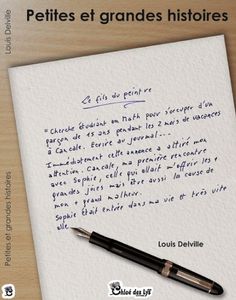 Petites et grandes histoires
Louis Delville
Petites et grandes histoires
Le fils du peintre
"Cherche étudiant en Math pour s'occuper d'un
garçon de 15 ans pendant les 2 mois de vacances
à Cancale. Ecrire au journal...
Immédiatement cette annonce a attiré mon
attention. Cancale, ma première rencontre
avec Sophie, celle qui allait m'offrir les +
grandes joies mais être aussi la cause de
mon + grand malheur.
Sophie était entrée dans ma vie et très vite
elle
Louis Delville
Chloé des Lys